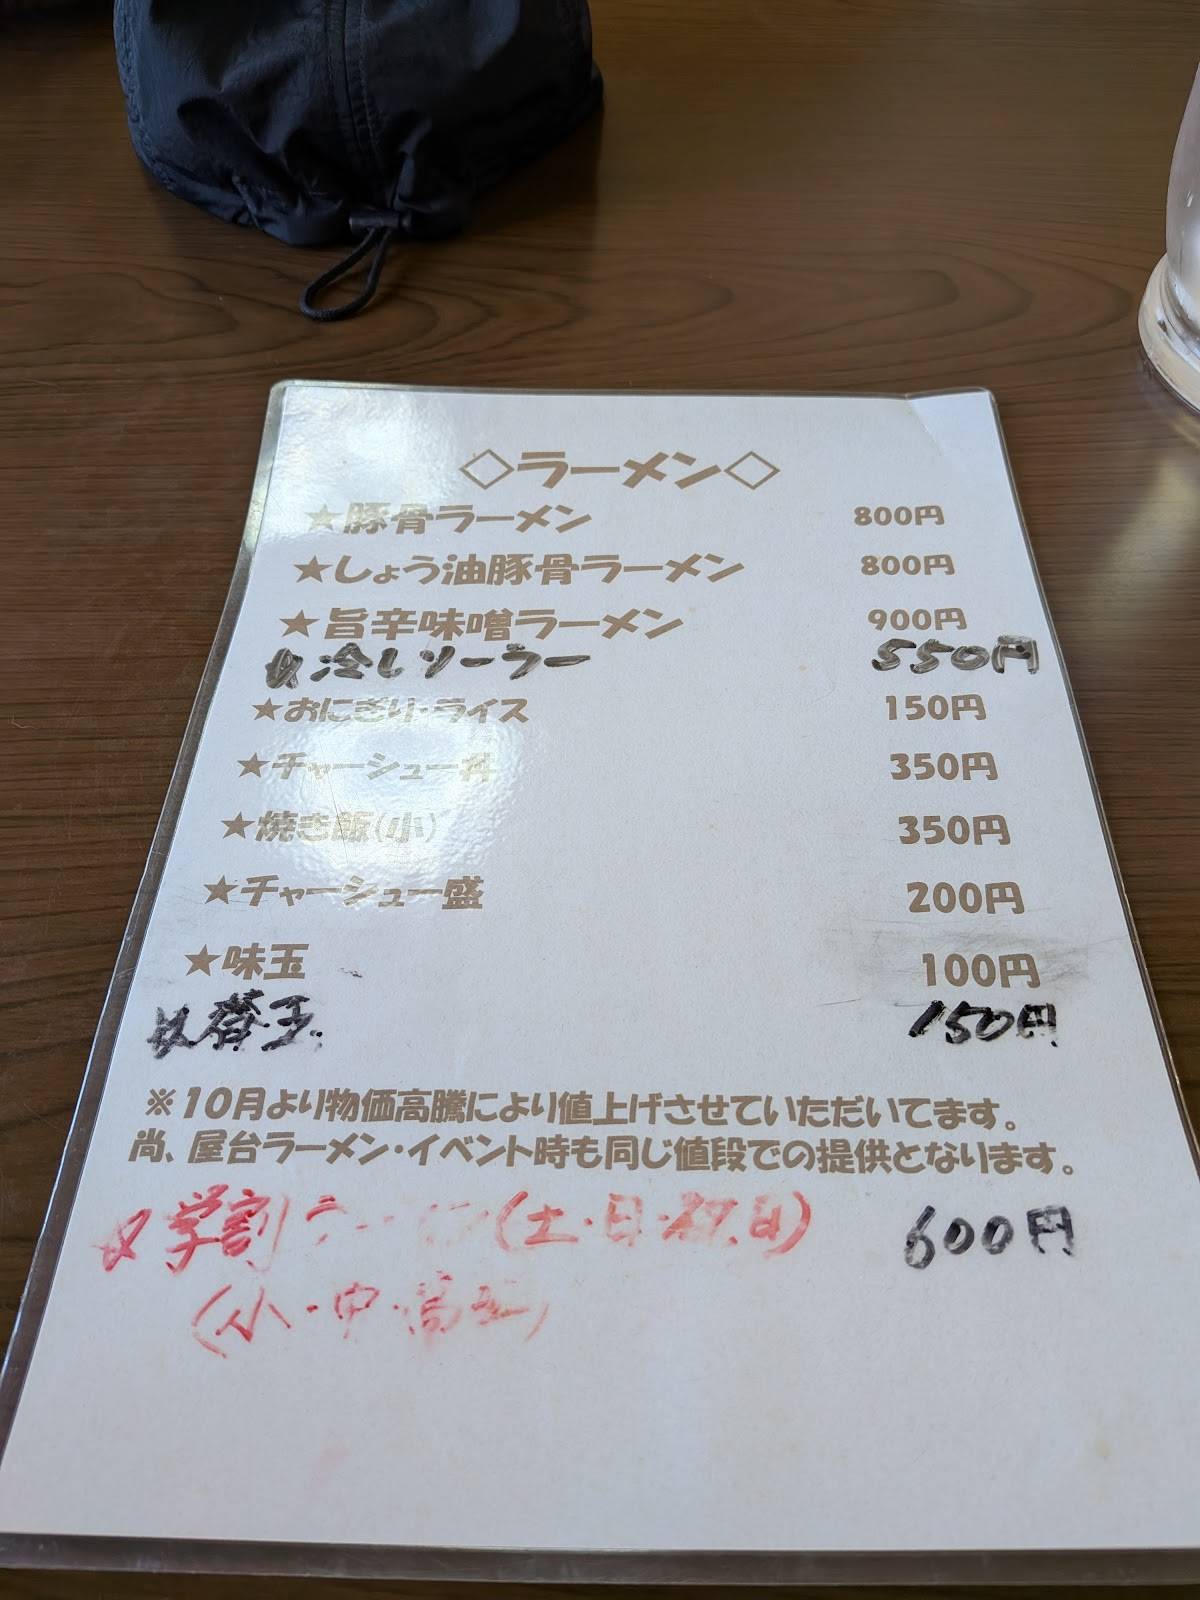 ◇ラーメン◇
★豚骨ラーメン 800円
★しょう油豚骨ラーメン 800円
★旨辛味噌ラーメン 900円
冷しソーラー 550円
★おにぎり・ライス 150円
★チャーシュー丼 350円
★焼き飯(小) 350円
★チャーシュー盛 200円
★味玉 100円
替玉 150円
※10月より物価高騰により値上げさせていただいてます。
尚、屋台ラーメン・イベント時も同じ値段での提供となります。
学割ラーメン(土・日・祝日) 600円
(小・中・高生)